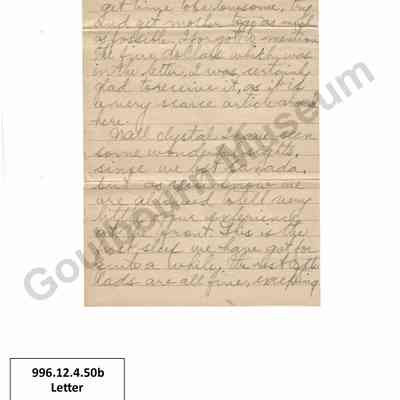 get time to be lonesome, try
and get mother to go as much
as possible. I forgot to mention
the five dollars which was
in the letter, I was certainly
glad to receive it, as it is
a very scarce article around
here.
Well Clystal I have seen
some wonderful sights,
since we left Canada,
but as you know we
are allowed to tell very
little of our experiences
at the front. This is the
best sleep we have got for
quite a while, the rest of the
lads are all fine, excepting
Goulbourn Museum
996.12.4.50b
Letter